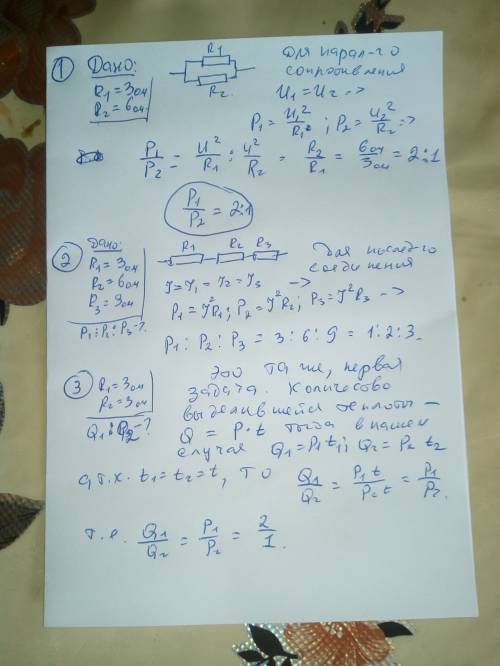 ① Дано:
R₁ = 3 ом
R₂ = 6 ом
R₁
R₂
Для парал-го
сопротивления
U₁ = U₂ =>
P₁ = U₁²/R₁ ; P₂ = U₂²/R₂ =>
P₁/P₂ = U²/R₁ : U²/R₂ = R₂/R₁ = 6 ом/3 ом = 2:1
P₁/P₂ = 2:1
② Дано:
R₁ = 3 ом
R₂ = 6 ом
R₃ = 9 ом
P₁ : P₂ : P₃ - ?
R₁ R₂ R₃
Для послед-го
соединения
I = I₁ = I₂ = I₃ ->
P₁ = I²R₁ ; P₂ = I²R₂ ; P₃ = I²R₃ ->
P₁ : P₂ : P₃ = 3 : 6 : 9 = 1:2:3.
③ R₁ = 3 ом
R₂ = 3 ом
Q₁ : Q₂ - ?
Это та же, первая
задача. Количество
выделившейся теплоты –
Q = P·t тогда в нашем
случае Q₁ = P₁t₁ ; Q₂ = P₂ t₂
а, т.к. t₁ = t₂ = t, то Q₁/Q₂ = P₁ t/P₂ t = P₁/P₂.
т.е. Q₁/Q₂ = P₁/P₂ = 2/1.